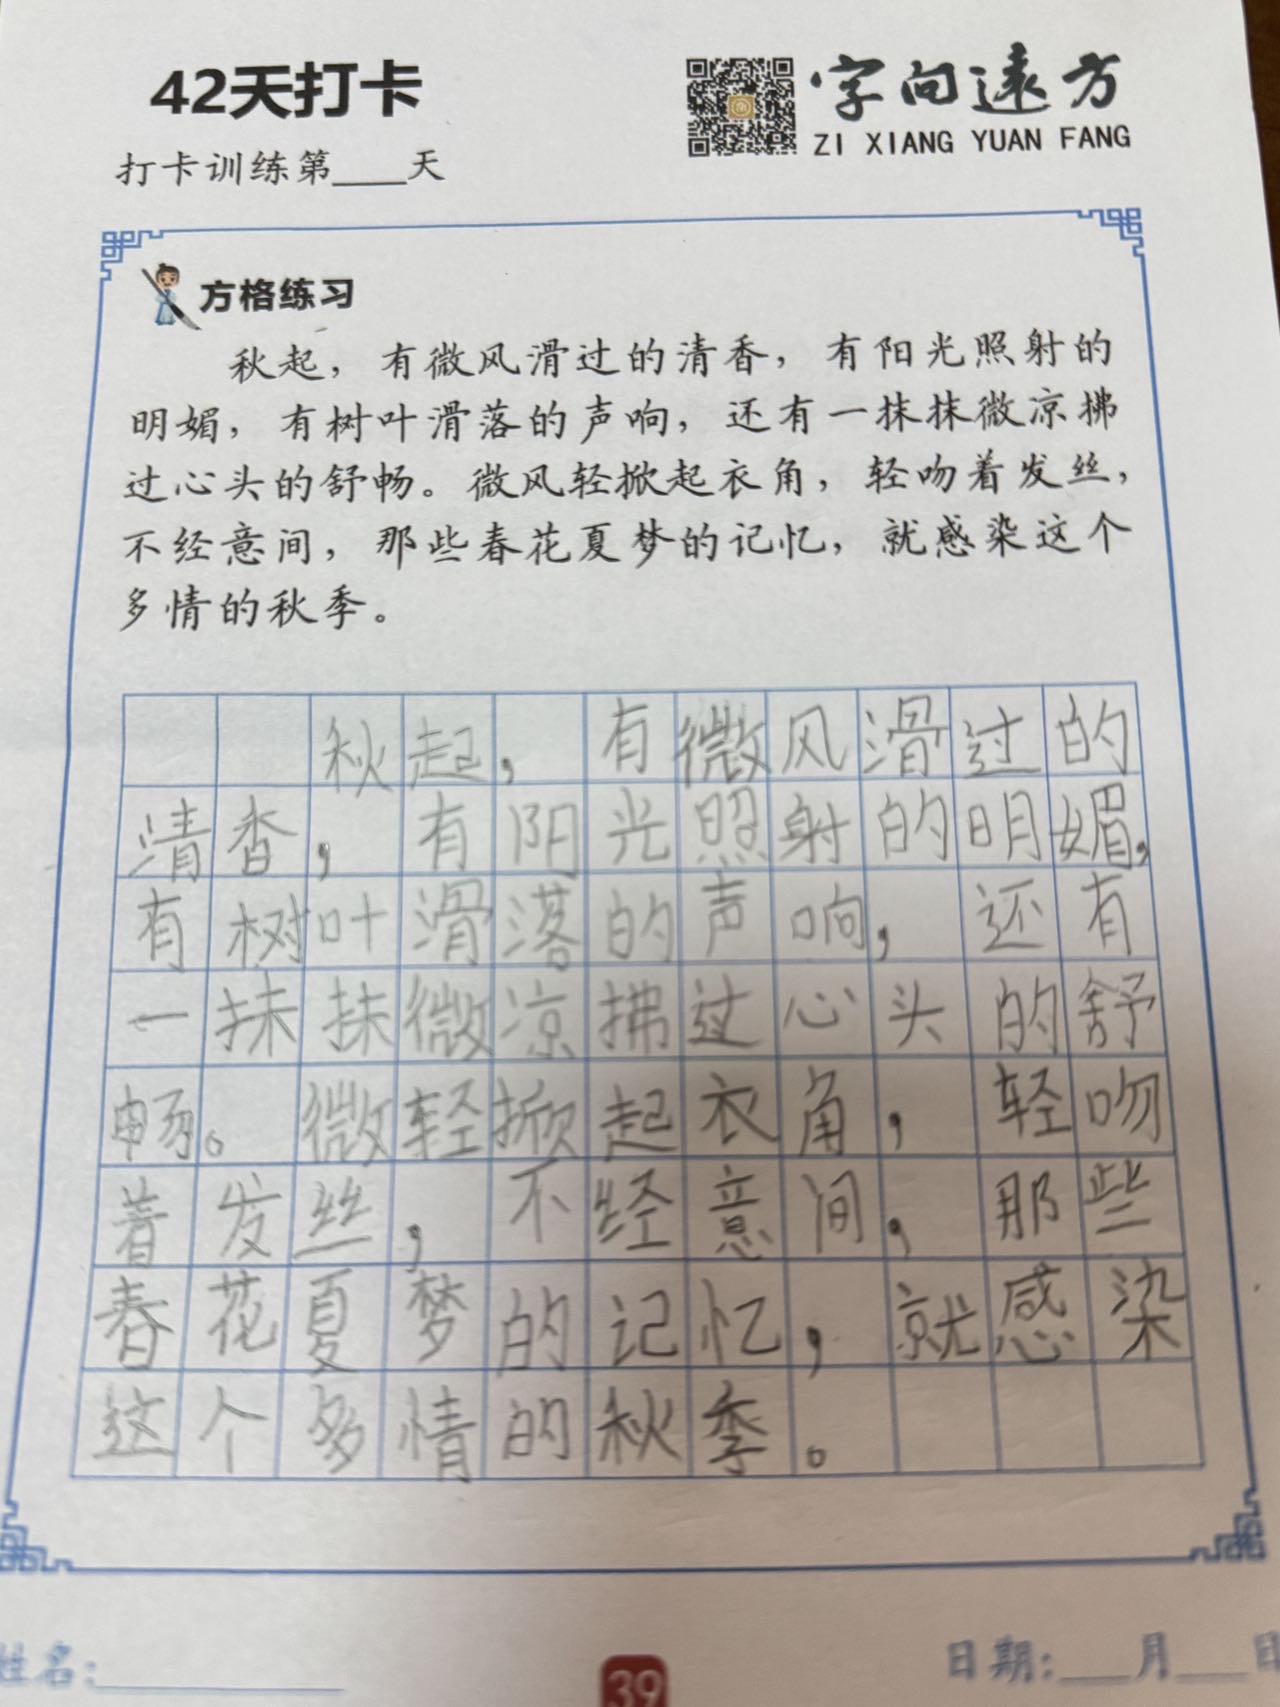 42天打卡
字向远方
ZI XIANG YUAN FANG
打卡训练第____天
方格练习
秋起，有微风滑过的清香，有阳光照射的
明媚，有树叶滑落的声响，还有一抹抹微凉拂
过心头的舒畅。微风轻掀起衣角，轻吻着发丝，
不经意间，那些春花夏梦的记忆，就感染这个
多情的秋季。
秋起，有微风滑过的
清香，有阳光照射的明媚，
有树叶滑落的声响，还有
一抹抹微凉拂过心头的舒
畅。微轻掀起衣角，轻吻
着发丝，不经意间，那些
春花夏梦的记忆，就感染
这个多情的秋季。
姓名：____
39
日期：____月____日